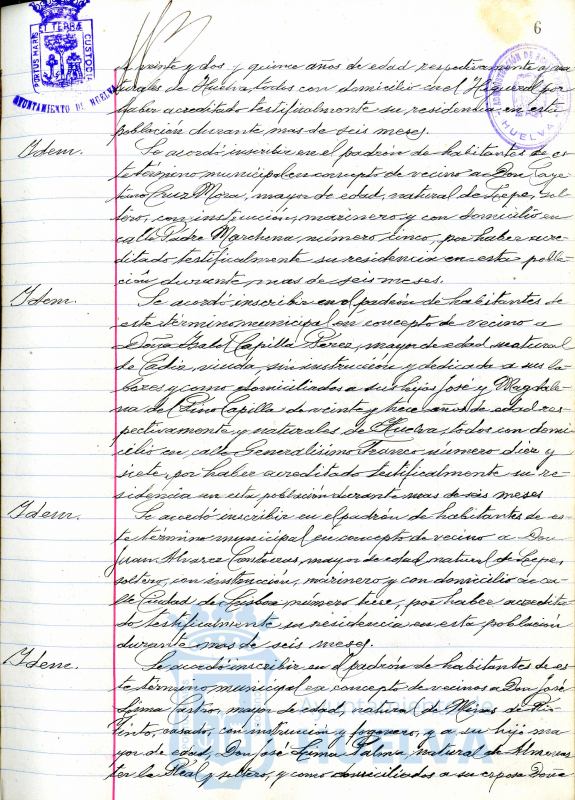 6
PORTUS MARIS ET TERRÆ CUSTODIA
AYUNTAMIENTO DE HUELVA
HUELVA
de veinte y dos y quince años de edad respectivamente y na-
turales de Huelva, todos con domicilio en el Higueral por
haber acreditado testificalmente su residencia en esta
población durante mas de seis meses.
Idem. Se acordó inscribir en el padrón de habitantes de es-
te término municipal en concepto de vecino a Don Caye-
tano Cruz Mora, mayor de edad, natural de Lepe, Sol-
tero, con instrucción, marinero y con domicilio en
calle Padre Marchena, número cinco, por haber acre-
ditado testificalmente su residencia en esta pobla-
ción durante mas de seis meses.
Idem. Se acordó inscribir en el padrón de habitantes de
este término municipal en concepto de vecino a
Doña Isabel Capilla Pérez, mayor de edad natural
de Cádiz, viuda, sin instrucción y dedicada a sus la-
bores y como domiciliados a sus hijos José y Magdale-
na de Pino Capilla de veinte y trece años de edad res-
pectivamente y naturales de Huelva todos con domi-
cilio en calle Generalisimo Franco número diez y
siete, por haber acreditado testificalmente su re-
sidencia en esta población durante mas de seis meses
Idem. Se acordó inscribir en el padrón de habitantes de es-
te término municipal en concepto de vecino a Don
Juan Alvarez Contreras, mayor de edad natural de Lepe,
soltero, con instrucción, marinero y con domicilio de ca-
lle Ciudad de Lisboa número trece, por haber acredita-
do testificalmente su residencia en esta población
durante mas de seis meses.
Idem. Se acordó inscribir en el padrón de habitantes de es-
te término municipal en concepto de vecinos a Don José
Lima mayor de edad, natural de Minas de Rio-
Tinto, casado, con instrucción y fogonero, y a su hijo ma-
yor de edad, Don José Lima Palma natural de Almonas-
ter la Real y soltero, y como domiciliados a su esposa Doña
Ayuntamiento de
HUELVA